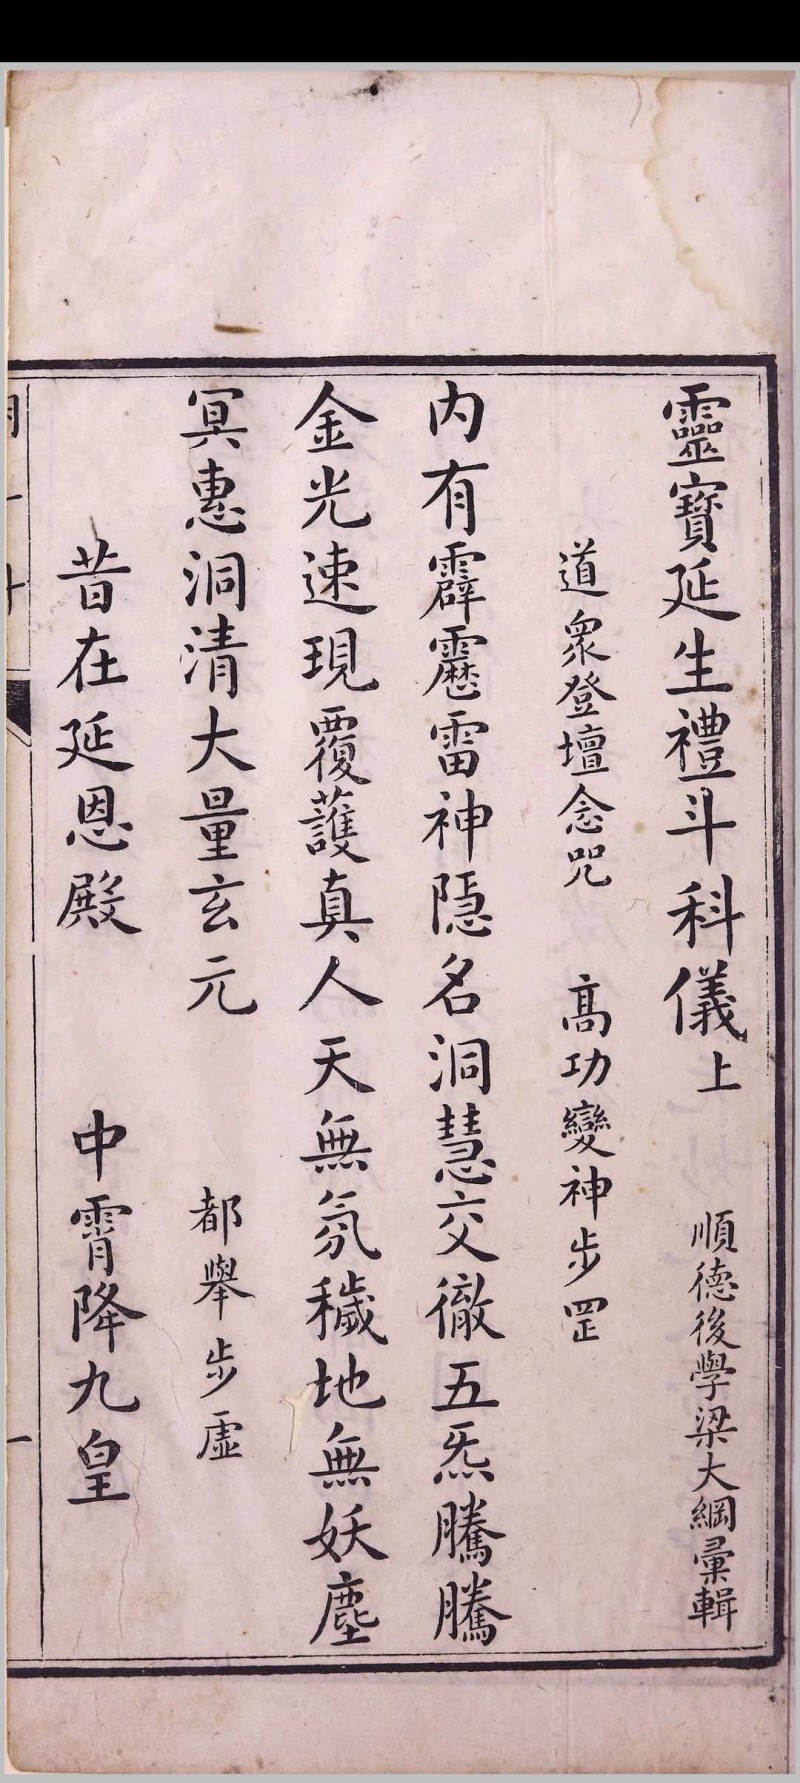 靈寶延生禮斗科儀上 順德後學梁大綱彙輯
道眾登壇念咒 高功變神步罡
內有霹靂雷神隱名洞慧交徹五炁騰騰
金光速現覆護真人天無氛穢地無妖塵
冥惠洞清大量玄元 都舉步虛
昔在延恩殿 中霄降九皇
一